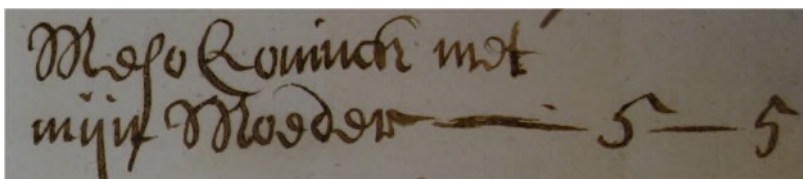 Meso Coninck met
mijn Moeder — 5 — 5